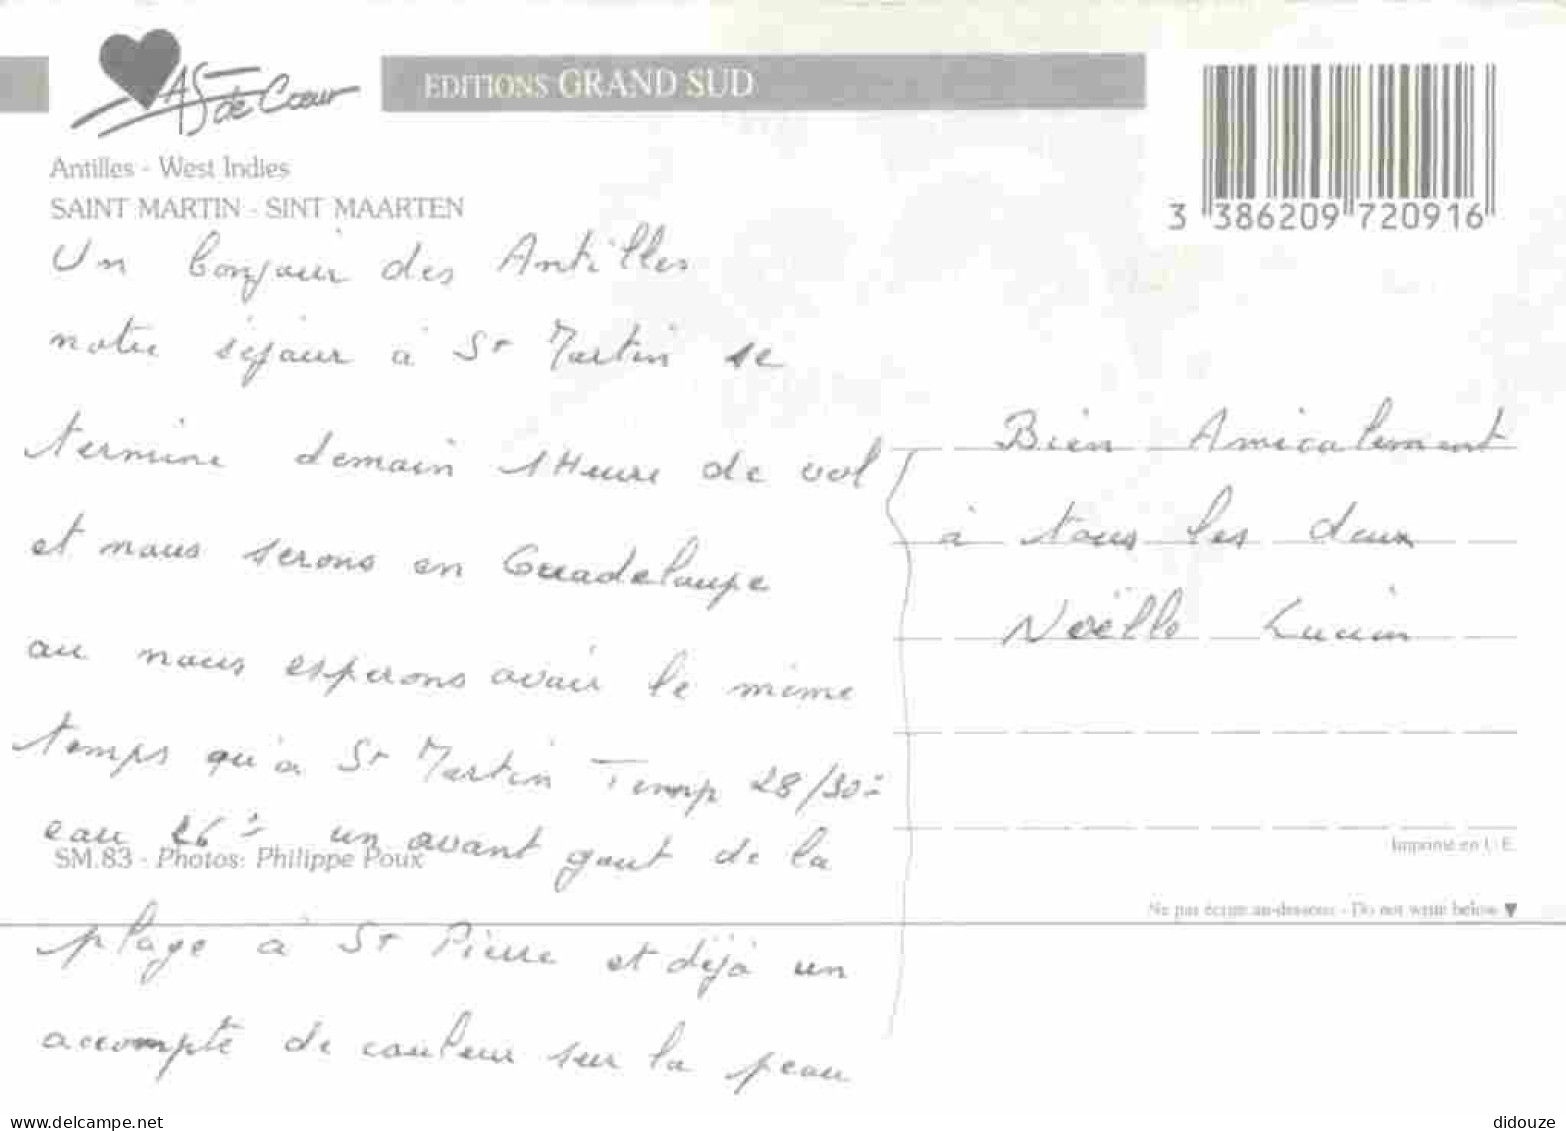 AS de Cœur
EDITIONS GRAND SUD
Antilles - West Indies
SAINT MARTIN - SINT MAARTEN
3 386209 720916
Un bonjour des Antilles
notre séjour à St Martin se
termine demain 1 Heure de vol
et nous serons en Guadeloupe
ou nous esperons avoir le même
temps qu'à St Martin Temp 28/30°
eau 26° un avant gout de la
SM.83 - Photos: Philippe Poux
plage à St Pierre et déjà un
accompte de couleur sur la peau
Bien Amicalement
à tous les deux
Noëlle Lucien
Imprimé en U.E.
Ne pas écrire au-dessous - Do not write below ▼
delcampe.net
didouze